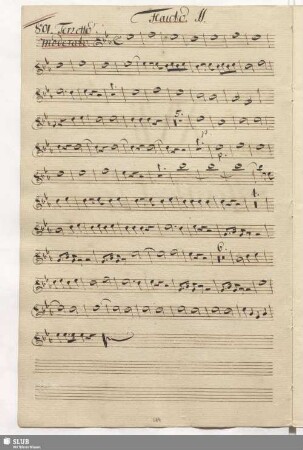 Flauto. II.
Terzetto
moderato
1.
5.
1.
p.
1.
1.
6.
SLUB
Wir führen Wissen.